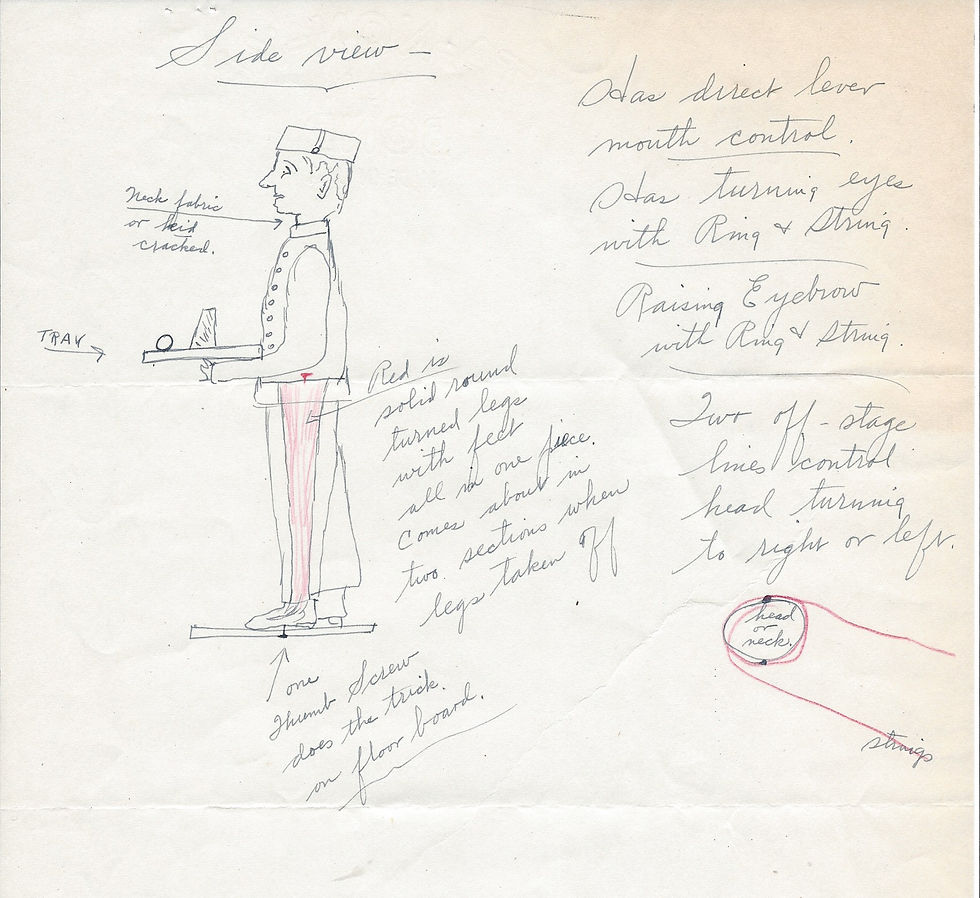 Side view —
Neck fabric
or kid
cracked.
TRAY
Red is
solid round
turned legs
with feet
all in one piece.
Comes about in
two sections when
legs taken off
one
Thumb Screw
does the trick.
on floor board.
Has direct lever
mouth control.
Has turning eyes
with Ring & String.
Raising Eyebrow
with Ring & String.
Two off-stage
lines control
head turning
to right or left.
head
or
neck.
strings